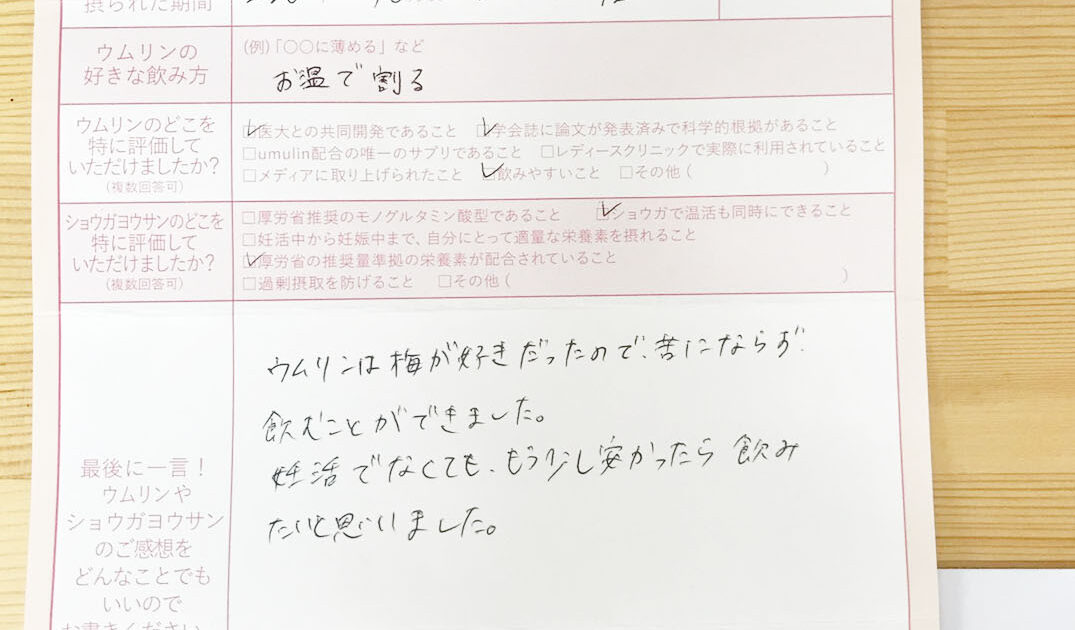 摂られた期間
ウムリンの
好きな飲み方
(例)「〇〇に薄める」など
お温で割る
ウムリンのどこを
特に評価して
いただけましたか?
(複数回答可)
☑医大との共同開発であること ☑学会誌に論文が発表済みで科学的根拠があること
□umulin配合の唯一のサプリであること □レディースクリニックで実際に利用されていること
□メディアに取り上げられたこと ☑飲みやすいこと □その他 ( )
ショウガヨウサンのどこを
特に評価して
いただけましたか?
(複数回答可)
□厚労省推奨のモノグルタミン酸型であること ☑ショウガで温活も同時にできること
□妊活中から妊娠中まで、自分にとって適量な栄養素を摂れること
☑厚労省の推奨量準拠の栄養素が配合されていること
□過剰摂取を防げること □その他 ( )
最後に一言!
ウムリンや
ショウガヨウサン
のご感想を
どんなことでも
いいので
お書きください
ウムリンは梅が好きだったので、苦にならず、
飲むことができました。
妊活でなくても、もう少し安かったら飲み
たいと思いました。